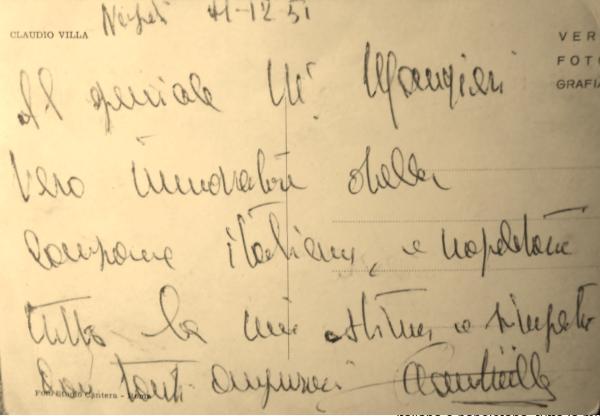 CLAUDIO VILLA Napoli 11-12.51
VERA
FOTO
GRAFIA
Al geniale M° Mangieri
vero innovatore della
canzone italiana, e napoletana
tutta la mia stima, e simpatia
con tanti auguroni Claudio Villa
Foto Studio Cantera - Roma